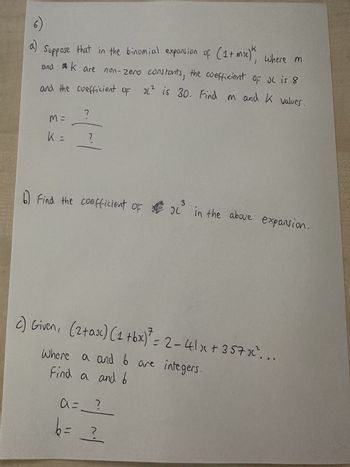 6)
a) Suppose that in the binomial expansion of (1+mx)^k, where m
and k are non-zero constants, the coefficient of x is 8
and the coefficient of x² is 30. Find m and k values.
m = ?
k = ?
b) Find the coefficient of x³ in the above expansion.
c) Given, (2+ax)(1+bx)⁷ = 2-41x+357x²...
Where a and b are integers.
Find a and b
a = ?
b = ?